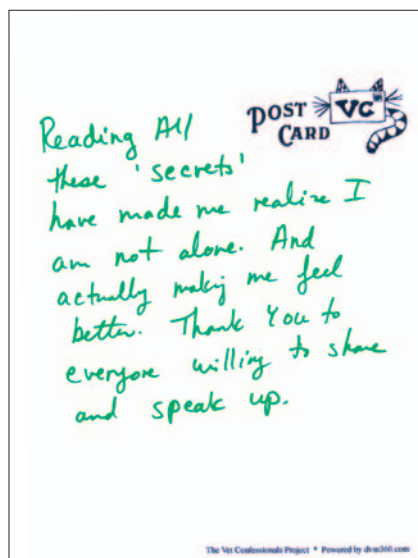 POST CARD
VC
Reading All
these 'secrets'
have made me realize I
am not alone. And
actually making me feel
better. Thank You to
everyone willing to share
and speak up.
The Vet Confessionals Project * Powered by dvm360.com